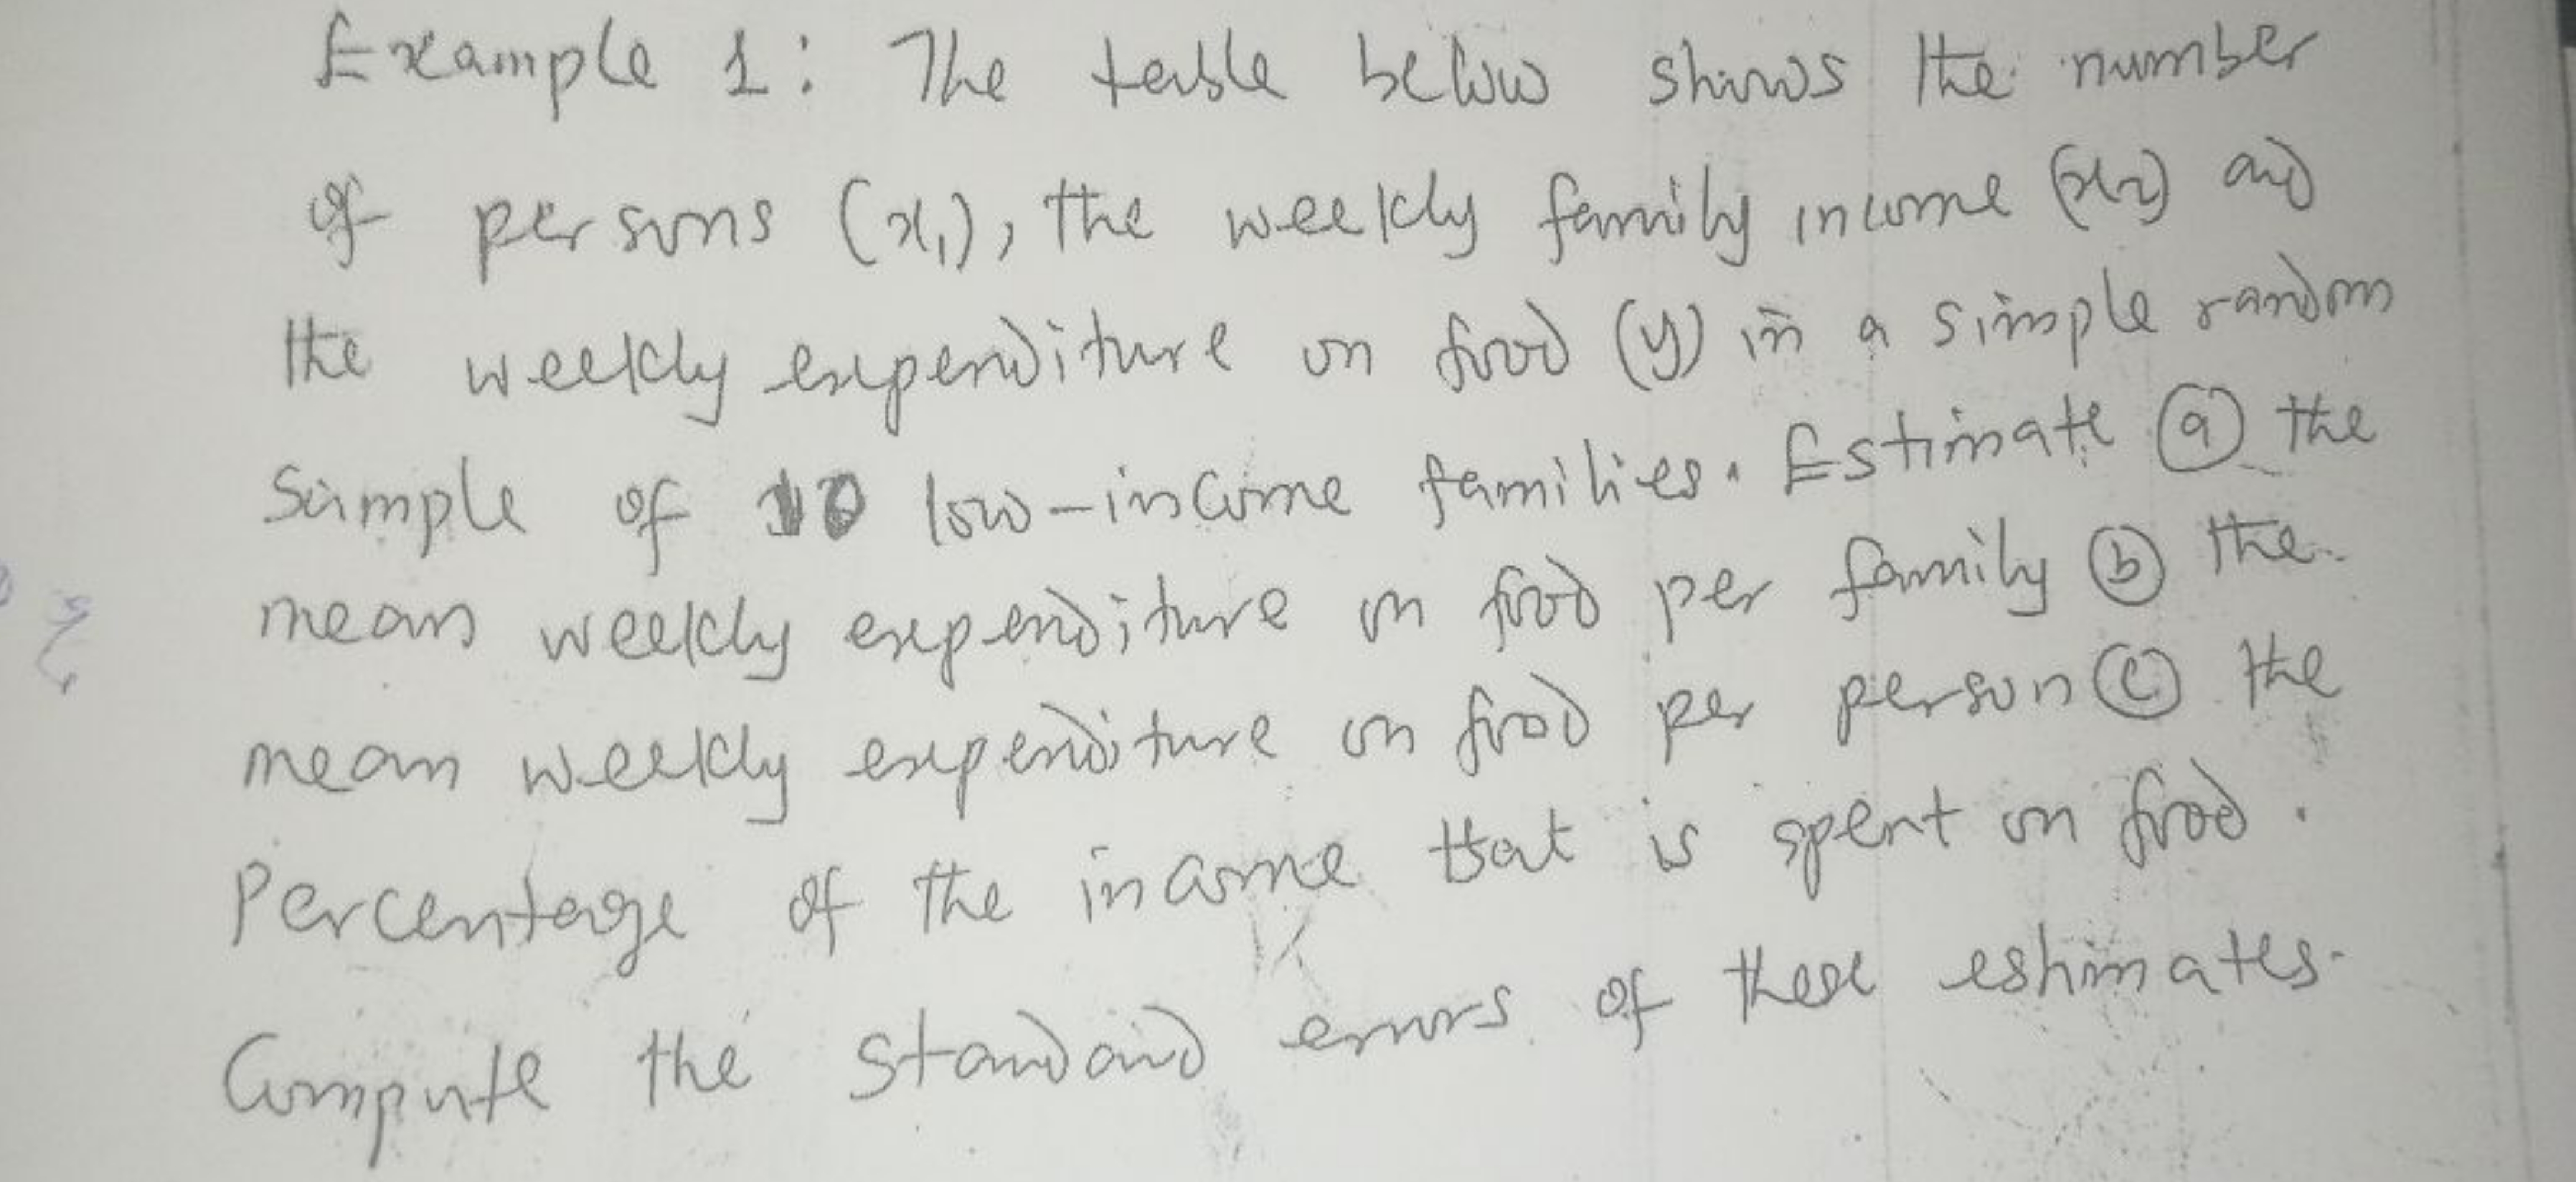 Example 1: The table below shows the number
of persons (x₁), the weekly family income (x₂) and
the weekly expenditure on food (y) in a simple random
Sample of 10 low-income families. Estimate ⓐ the
mean weekly expenditure on food per family ⓑ the
mean weekly expenditure on food per person ⓒ the
Percentage of the income that is spent on food.
Compute the standard errors of these estimates.